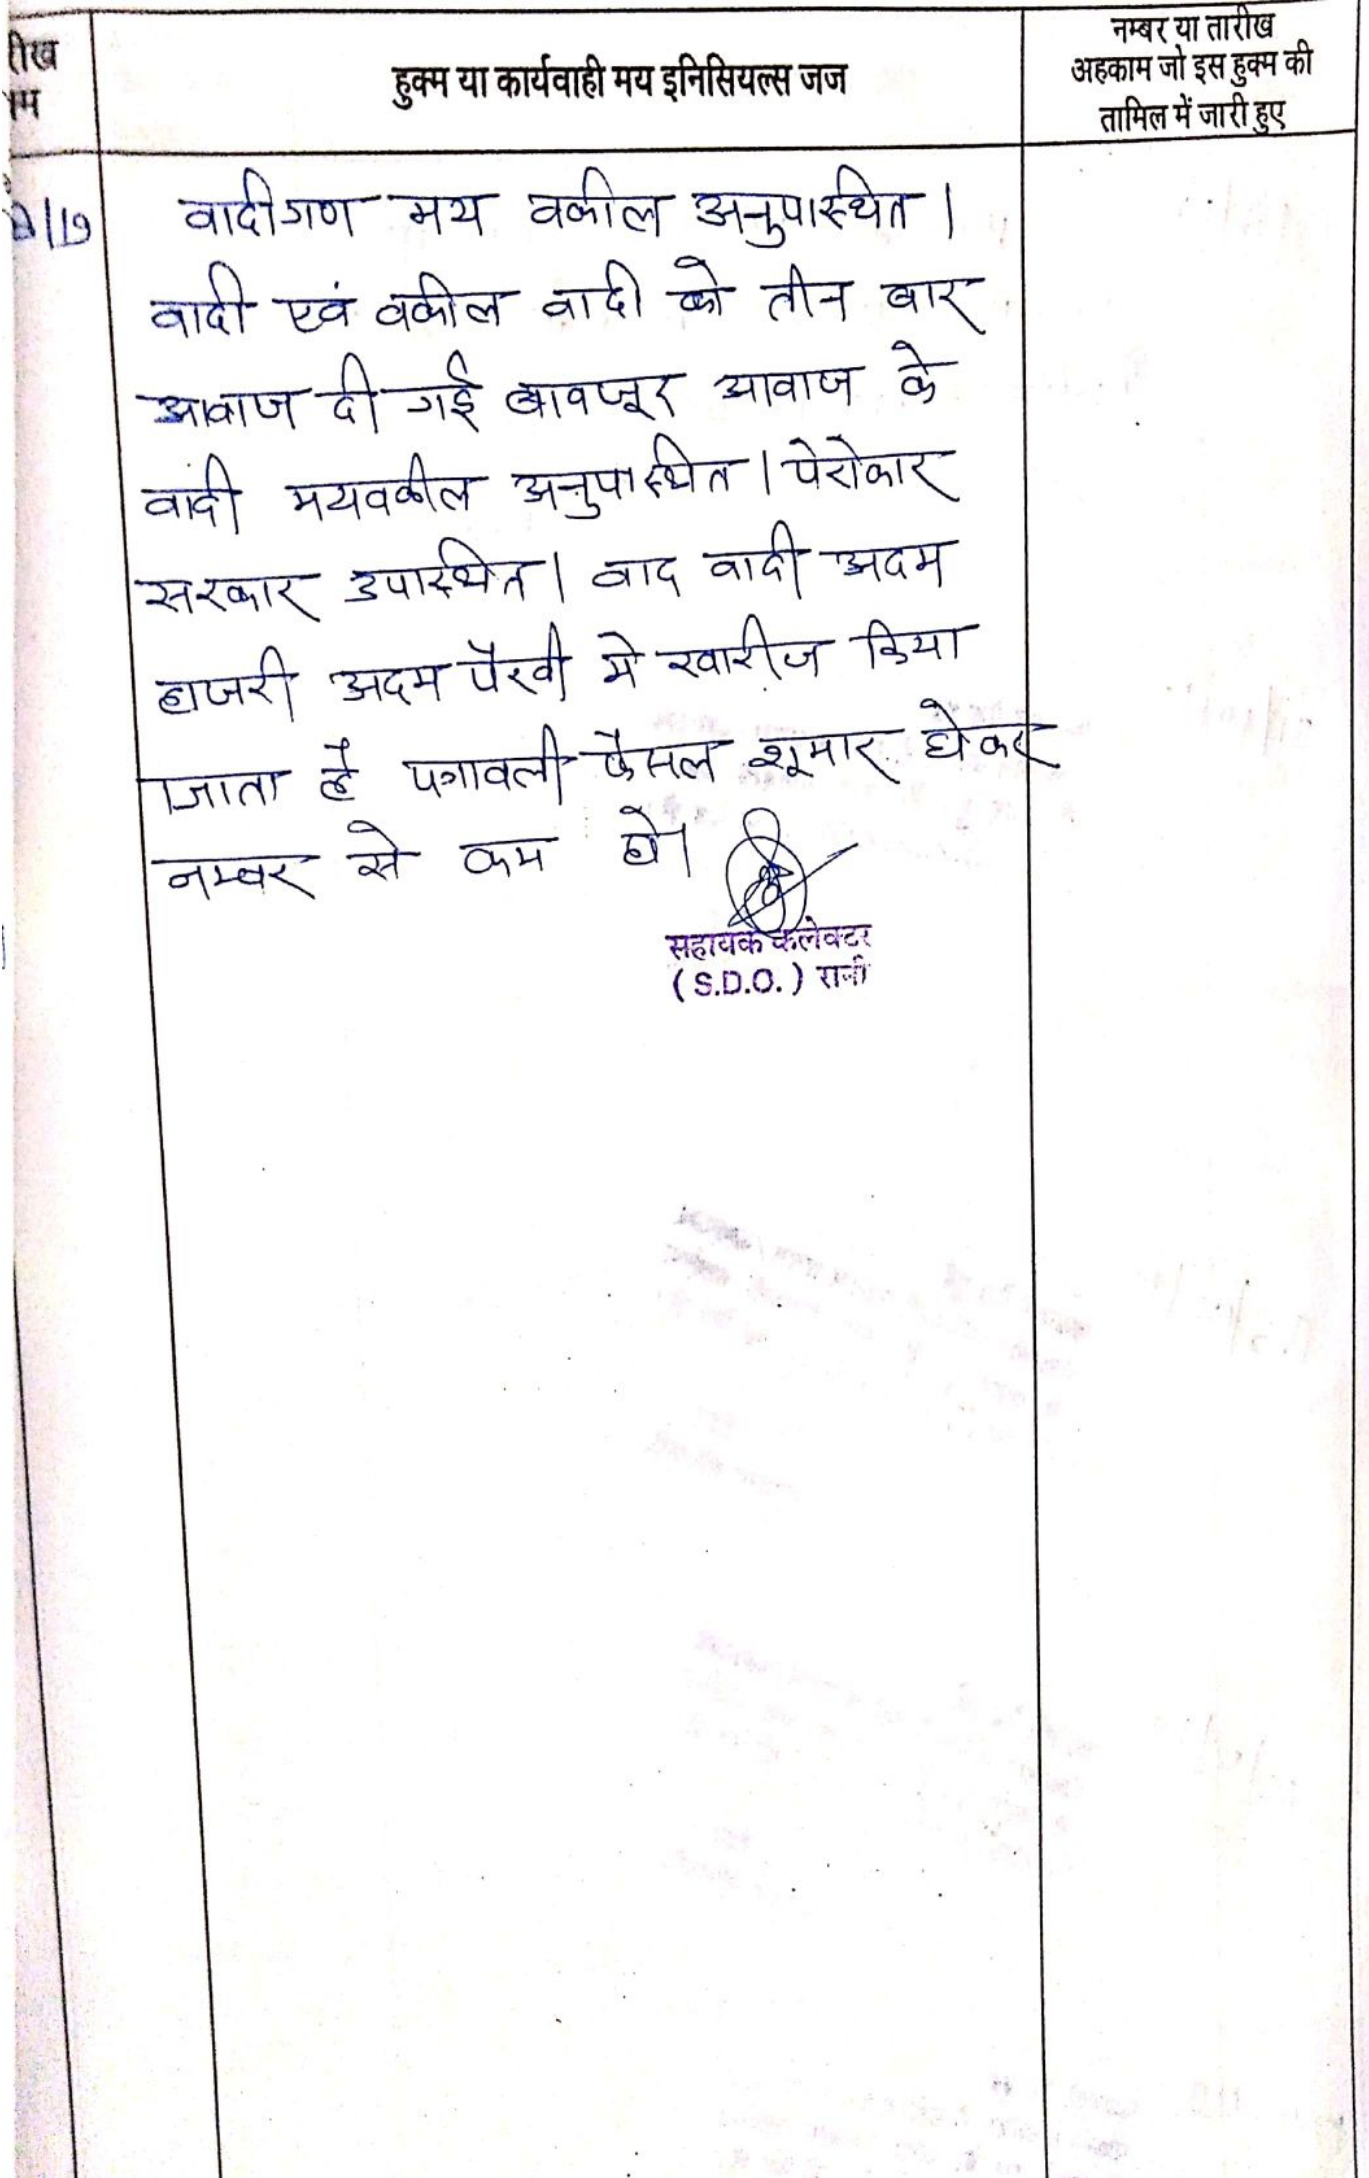 हुक्म या कार्यवाही मय इनिसियल्स जज
नम्बर या तारीख
अहकाम जो इस हुक्म की
तामिल में जारी हुए
वादीगण मय वकील अनुपास्थित।
वादी एवं वकील वादी को तीन बार
आवाज दी गई बावजूर आवाज के
वादी मयवकील अनुपास्थित। पेरोकार
सरकार उपास्थित। वाद वादी अदम
हाजरी अदम पैरवी मे खारीज किया
जाता है पत्रावली फैसल शूमार होकर
नम्बर से कम हो।
सहायक कलेक्टर
(S.D.O.) रानी